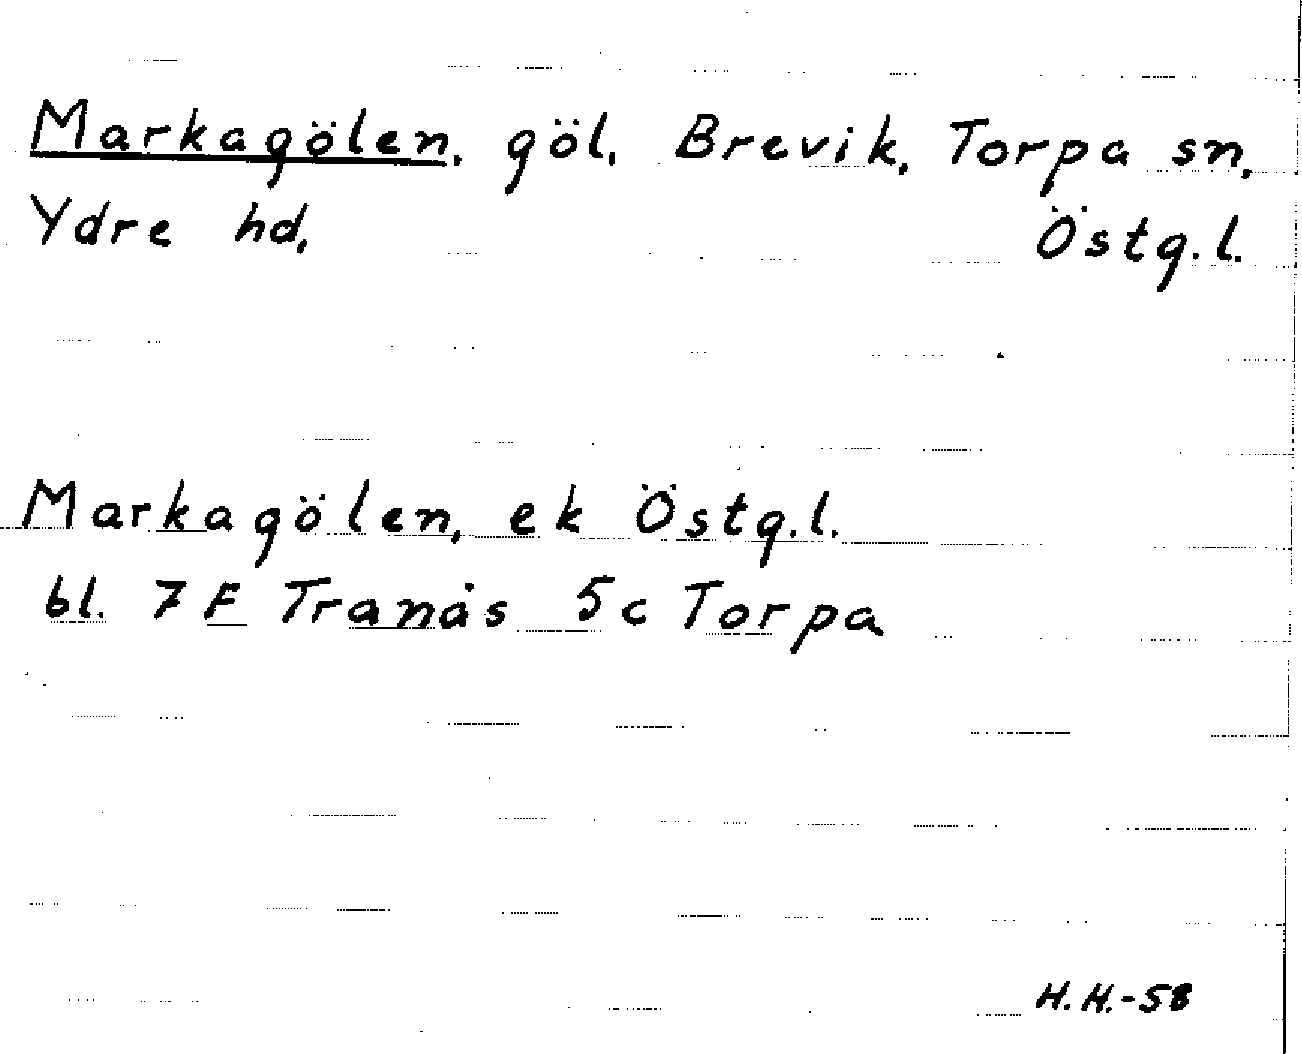 Markagölen, göl, Brevik, Torpa sn,
Ydre hd, Östg.l.
Markagölen, ek Östg.l.
bl. 7 F Tranås 5c Torpa
H.H.-58